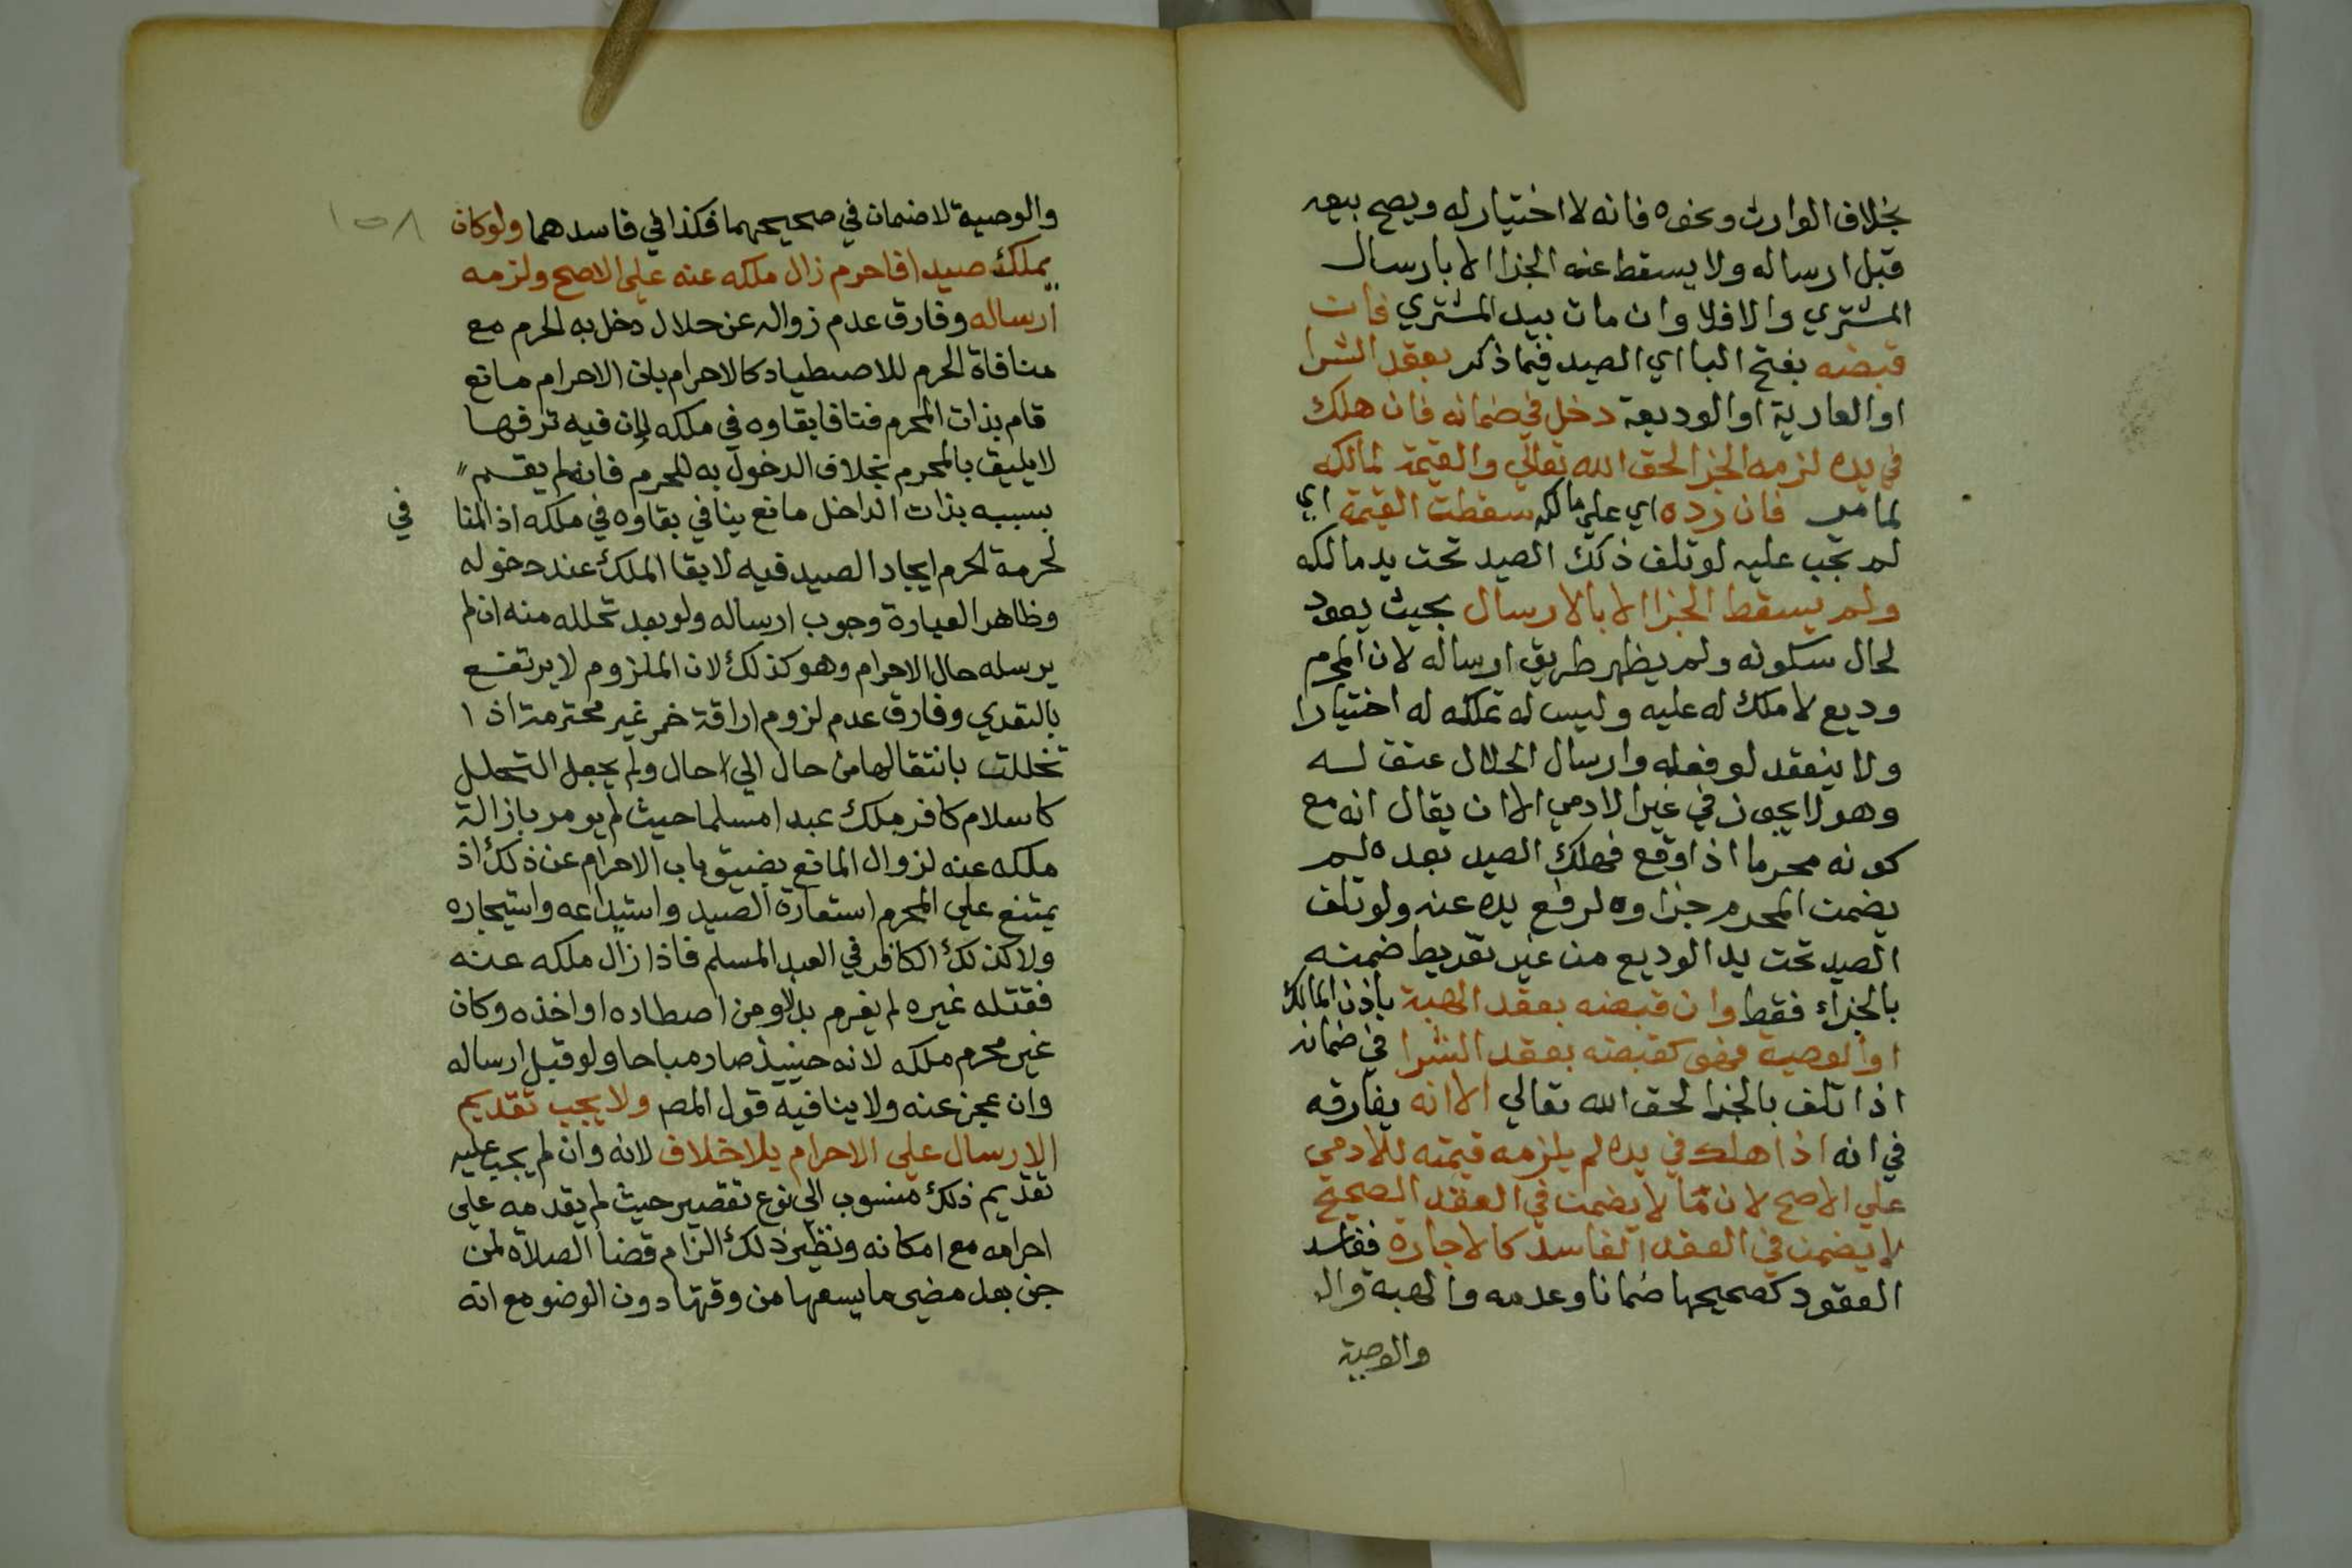 بخلاف الوارث ونحوه فانه لا اختيار له ويصح بيعه
قبل ارساله ولا يسقط عنه الجزا الا بارسال
المشتري والا فلا وان مات بيد المشتري فان
قبضه بفتح البا اي الصيد فيما ذكر بعقد الشرا
او العارية او الوديعة دخل في ضمانه فان هلك
في يده لزمه الجزا لحق الله تعالي والقيمة لمالكه
لما مر فان رده اي علي مالكه سقطت القيمة اي
لم تجب عليه لو تلف ذلك الصيد تحت يد مالكه
ولم يسقط الجزا الا بالارسال بحيث يعود
لحال سكونه ولم يظهر طريق ارساله لان المحرم
وديع لا ملك له عليه وليس له تملكه له اختيارا
ولا ينعقد لو فعله وارسال الحلال عتق له
وهو لا يجوز في غير الادمي الا ان يقال انه مع
كونه محرما اذا وقع فهلك الصيد بعده لم
يضمن المحرم جزاوه لرفع يده عنه ولو تلف
الصيد تحت يد الوديع من غير تفريط ضمنه
بالجزاء فقط وان قبضه بعقد الهبة باذن المالك
او الوصية فهو كقبضه بعقد الشرا في ضمانه
اذا تلف بالجزا لحق الله تعالي الا انه يفارقه
في انه اذا هلك في يده لم يلزمه قيمته للادمي
علي الاصح لان ما لا يضمن في العقد الصحيح
لا يضمن في العقد الفاسد كالاجارة ففاسد
العقود كصحيحها ضمانا وعدمه والهبة وال
والوصية
١٥٨
والوصية لا ضمان في صحيحهما فكذا في فاسدهما ولو كان
يملك صيدا فاحرم زال ملكه عنه علي الاصح ولزمه
ارساله وفارق عدم زواله عن حلال دخل به الحرم مع
منافاة الحرم للاصطياد كالاحرام بان الاحرام مانع
قام بذات المحرم فنافا بقاوه في ملكه لان فيه ترفها
لا يليق بالمحرم بخلاف الدخول به للحرم فانه لم يقم
بسببه بذات الداخل مانع ينافي بقاوه في ملكه اذ المنا في
لحرمة الحرم ايجاد الصيد فيه لا بقا الملك عند دخوله
وظاهر العبارة وجوب ارساله ولو بعد تحلله منه ان لم
يرسله حال الاحرام وهو كذلك لان الملزوم لا يرتفع
بالتعدي وفارق عدم لزوم اراقة خمر غير محترمة اذ ا
تخللت بانتقالها من حال الي حال ولم يجعل التحلل
كاسلام كافر ملك عبدا مسلما حيث لم يومر بازالة
ملكه عنه لزوال المانع بضيق باب الاحرام عن ذلك اذ
يمتنع علي المحرم استعارة الصيد واستيداعه واستيجاره
ولا كذلك الكافر في العبد المسلم فاذا زال ملكه عنه
فقتله غيره لم يغرم بدلا ومن اصطاده او اخذه وكان
غير محرم ملكه لانه حينيذ صار مباحا ولو قبل ارساله
وان عجز عنه ولا ينافيه قول المص ولا يجب تقديم
الارسال علي الاحرام بلا خلاف لانه وان لم يجب عليه
تقديم ذلك منسوب الي نوع تقصير حيث لم يقدمه علي
احرامه مع امكانه ونظير ذلك الزام قضا الصلاة لمن
جن بعد مضي ما يسعها من وقتها دون الوضو مع انه